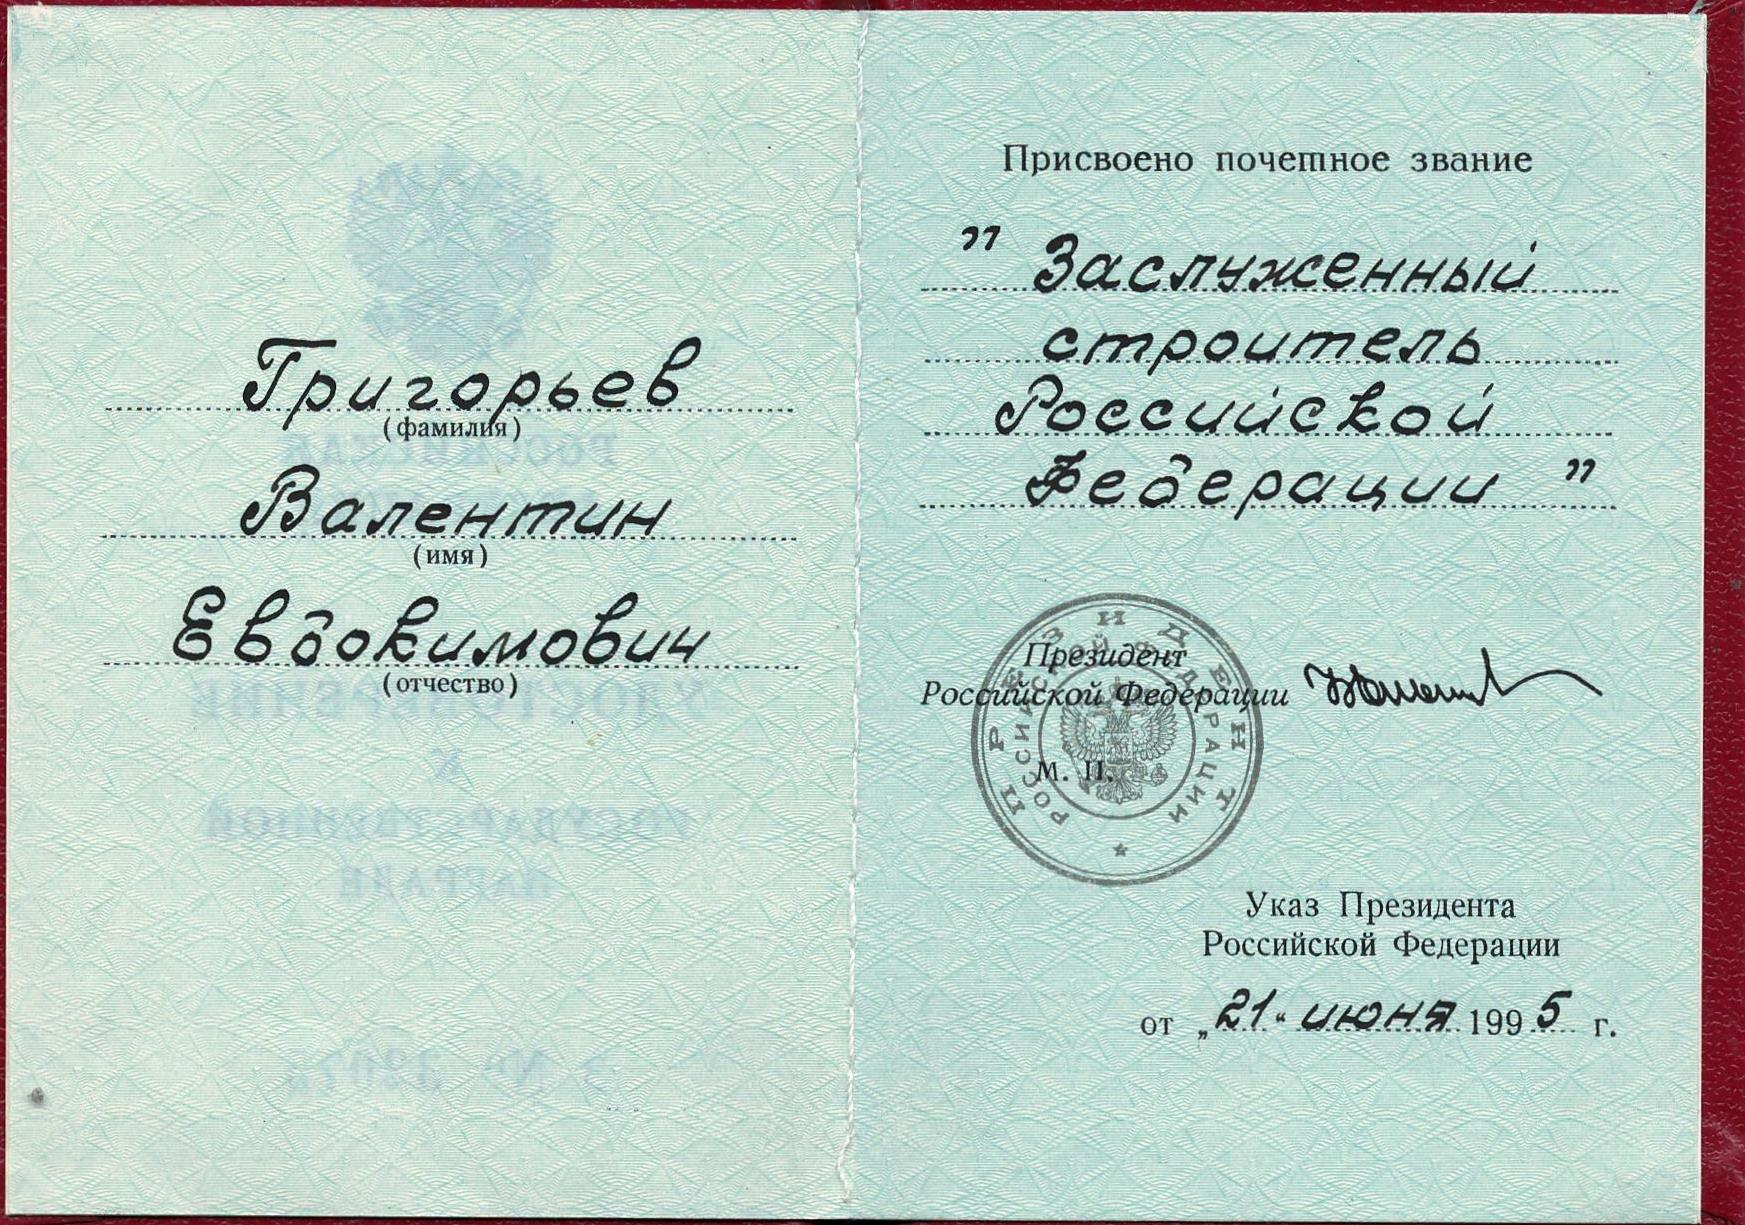 Григорьев
(фамилия)
Валентин
(имя)
Евдокимович
(отчество)
Присвоено почетное звание
" Заслуженный
строитель
Российской
Федерации "
Президент
Российской Федерации
М. П.
ПРЕЗИДЕНТ
РОССИЙСКОЙ ФЕДЕРАЦИИ
Указ Президента
Российской Федерации
от „21“ июня 1995 г.